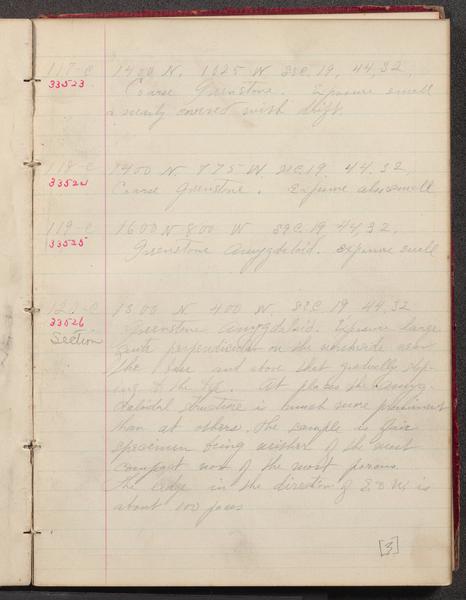 117-C 1400 N. 1625 W Sec. 19, 44, 32,
33523 Coarse Greenstone. Exposure small
& nearly covered with drift.
118-C 1400 N. 775 W. Sec. 19. 44, 32,
33524 Coarse Greenstone. Exposure also small
119-C 1600 N 800 W Sec. 19, 44, 32,
33525 Greenstone Amygdaloid. Exposure small
120-C 1300 N 400 W, Sec. 19 44, 32
33526 Greenstone Amygdaloid. Exposure large
Section quite perpendicular on the northside near
the base and above that gradually slop-
ing to the top. At places the Amyg-
daloidal structure is much more prominent
than at others. The sample is fair
specimen being neither of the most
compact nor of the most porous.
The ledge in the direction of is
about 100 paces
[3]